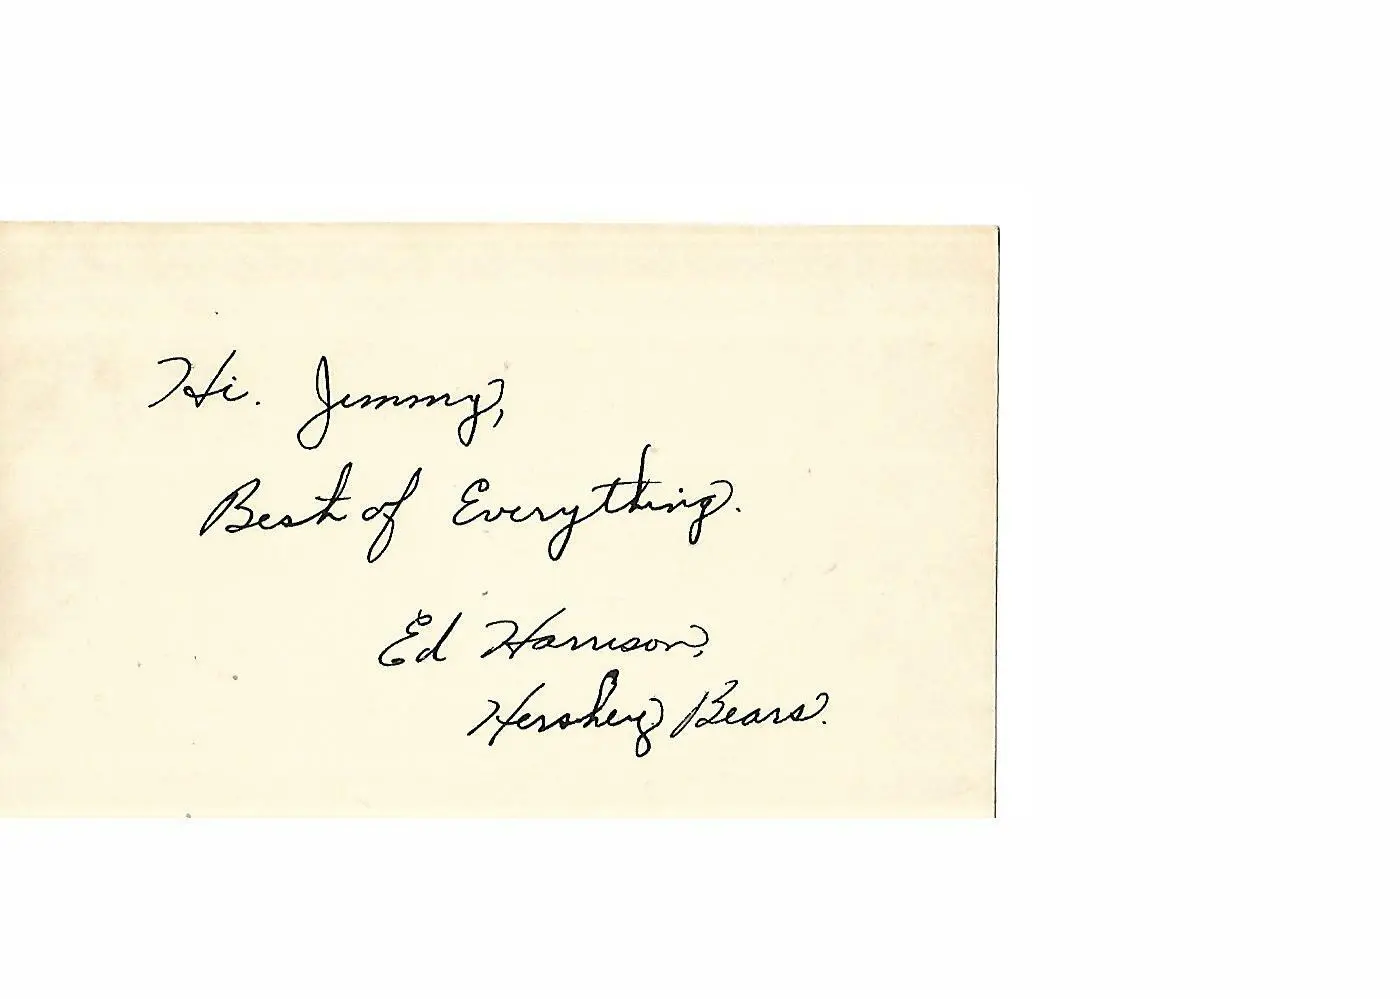 Hi. Jimmy,
Best of Everything.
Ed Harrison,
Hershey Bears.